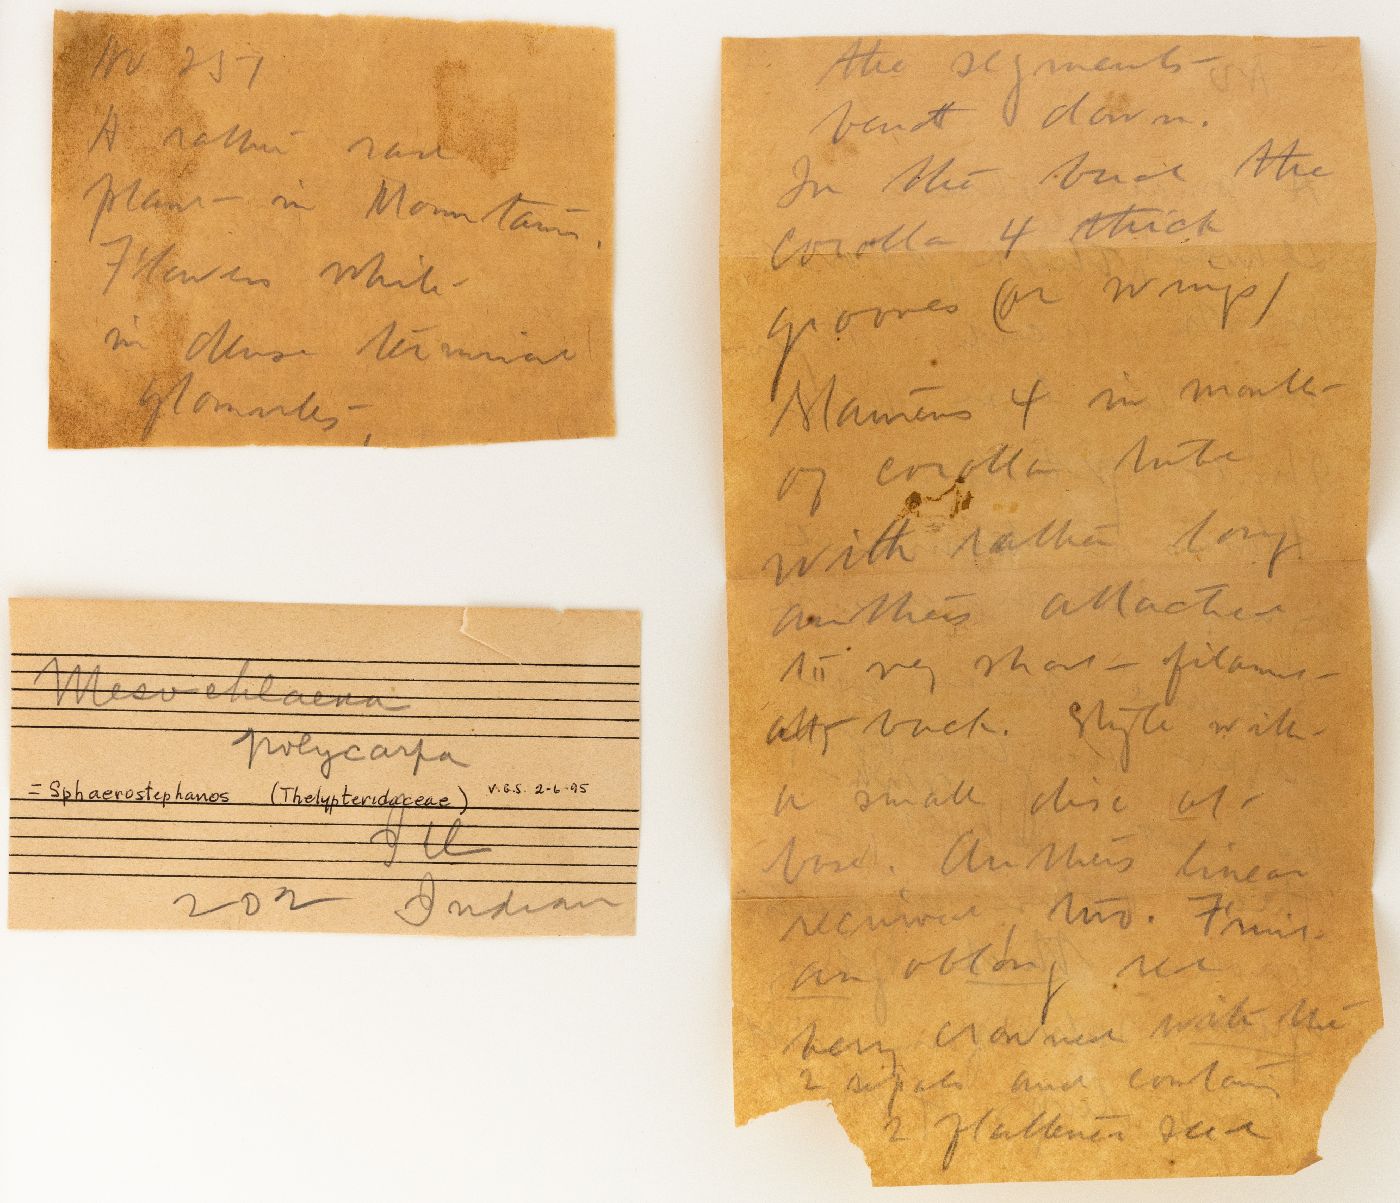 No 257
A rather rare
plant in Mountains.
Flowers white
in dense terminal
glomerules
Mesochlaena
polycarpa
= Sphaerostephanos (Thelypteridaceae) V.G.S. 2-6-95
202 Indian
the segments
bend down.
In the bud the
corolla 4 thick
grooves (or wings)
Stamens 4 in mouth
of corolla tube
with rather long
anthers attached
to very short filament
at back. Style with
a small disc at
base. Anthers linear
recurved, two. Fruit
an oblong red
berry crowned with the
2 sepals and contains
2 flattened seed